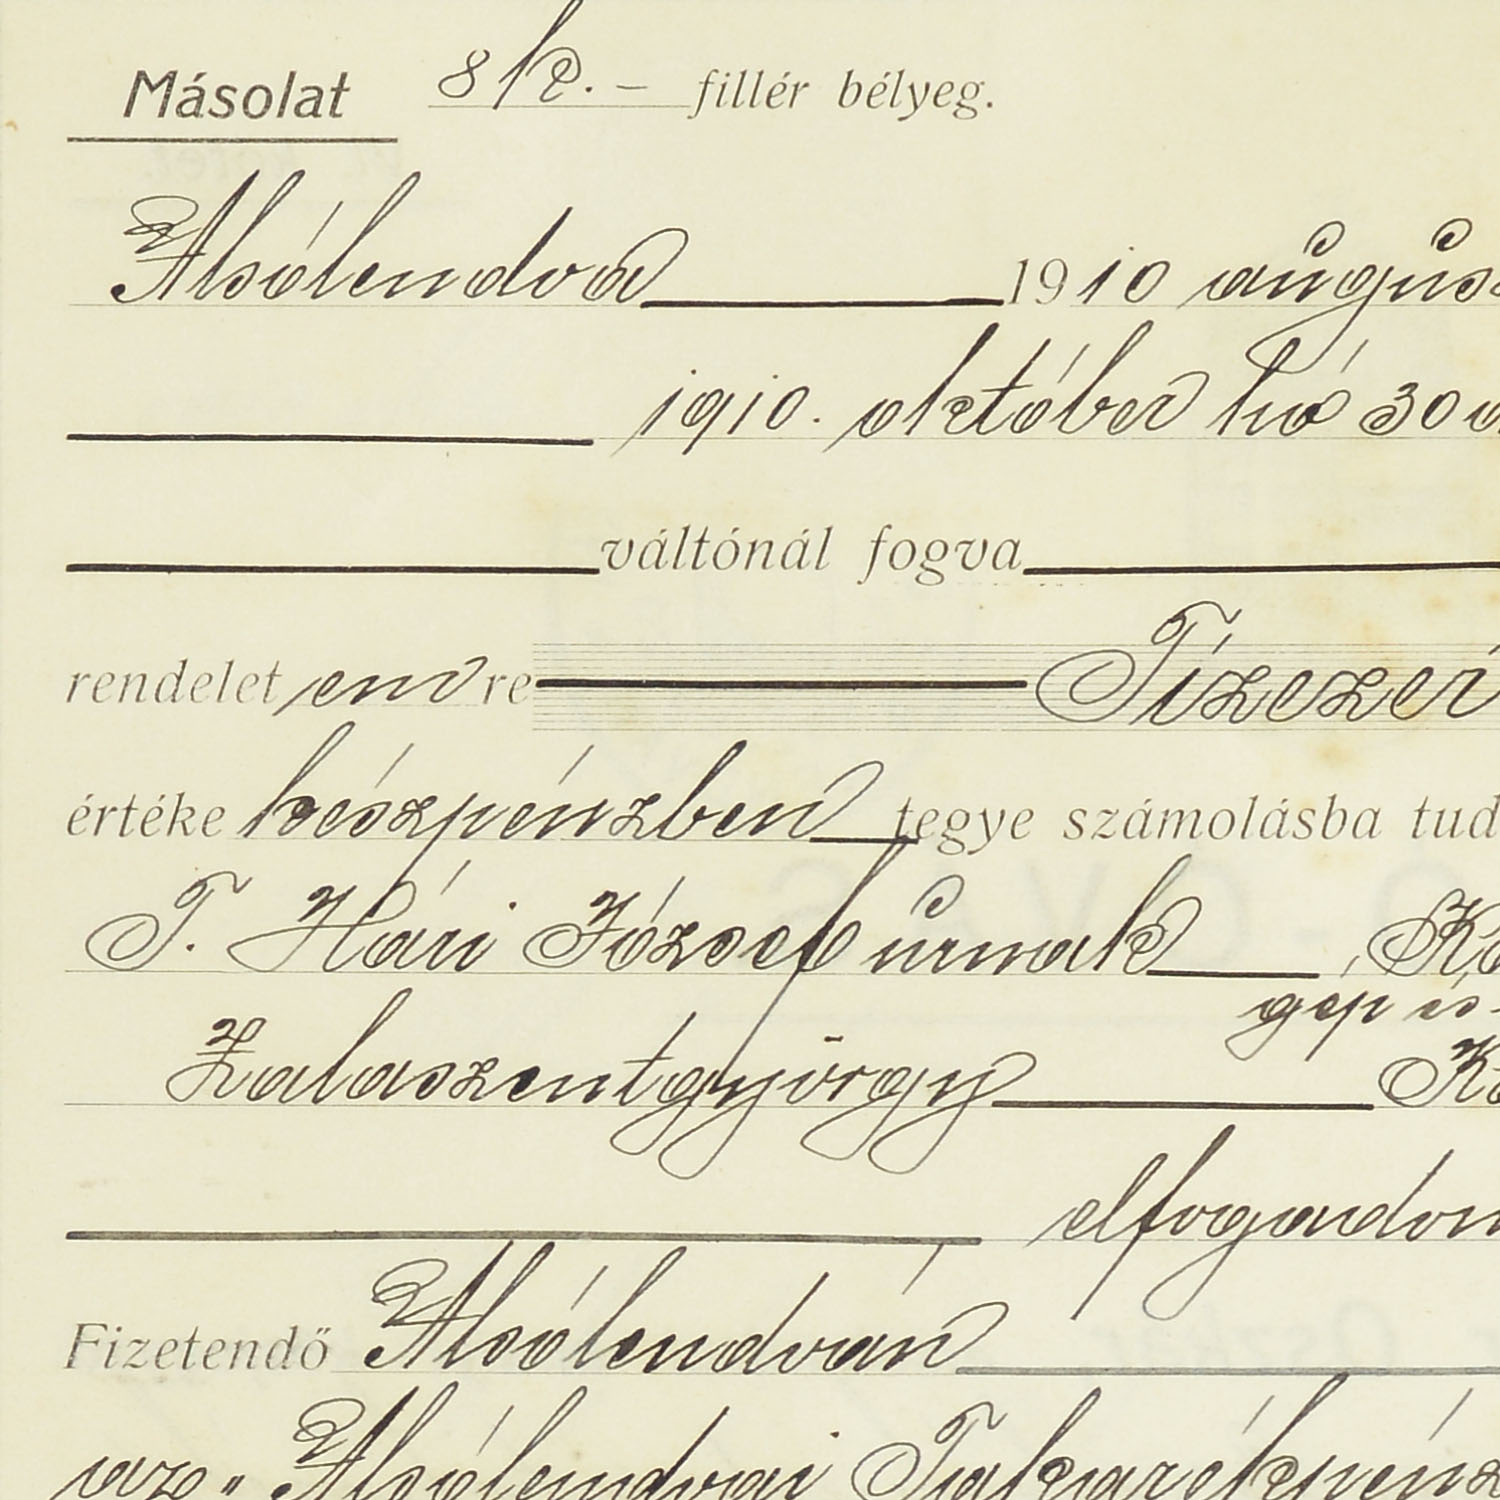 Másolat 8 k. – fillér bélyeg.
Alsólendva 1910 augus
1910. október hó 30
váltónál fogva
rendelet em re Tízezer
értéke készpénzben tegye számolásba tud
T. Hári József úrnak
gép és
Zalaszentgyörgy
elfogadom
Fizetendő Alsólendván
az „Alsólendvai Takarékpénz